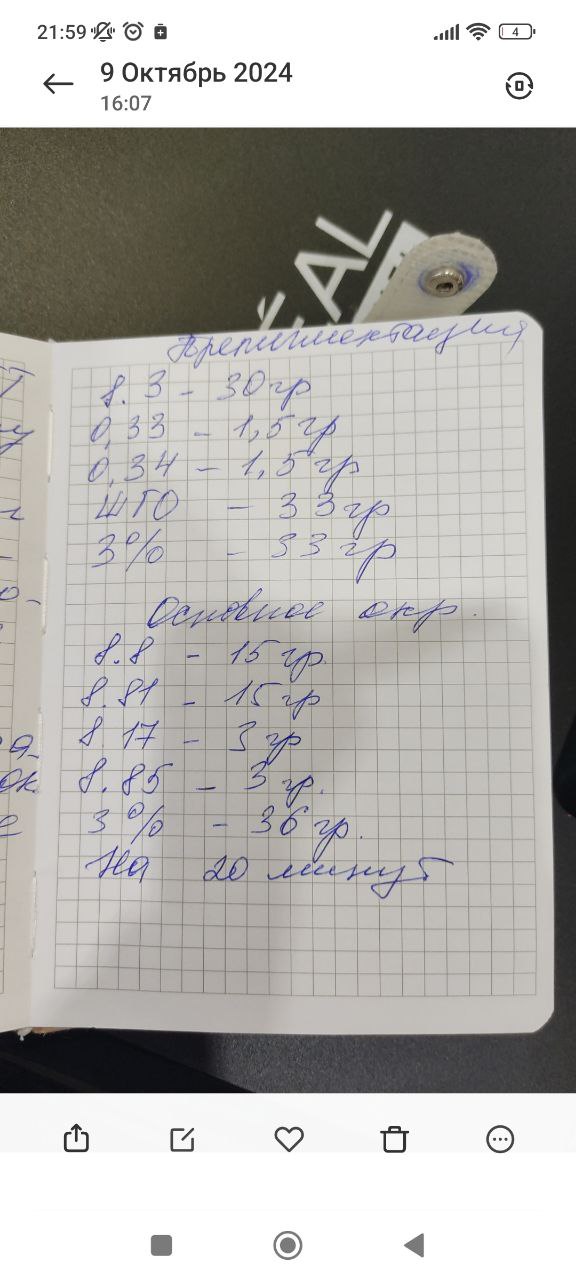 21:59
4
9 Октябрь 2024
16:07
EAL
Препигментация
8.3 - 30 гр
0,33 - 1,5 гр
0,34 - 1,5 гр
ШГО - 33 гр
3% - 33 гр
Основное окр.
8.8 - 15 гр.
8.81 - 15 гр
8.17 - 3 гр
8.85 - 3 гр.
3% - 36 гр.
На 20 минут